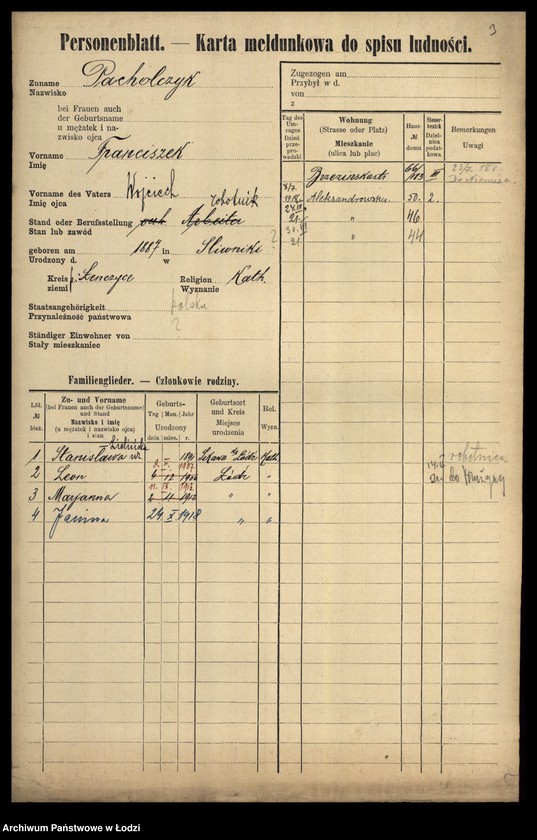 3
Personenblatt. — Karta meldunkowa do spisu ludności.
Zuname
Nazwisko
Pacholczyk
bei Frauen auch
der Geburtsname
u mężatek i na-
zwisko ojca
Vorname
Imię
Franciszek
Vorname des Vaters
Imię ojca
Wojciech
robotnik
Stand oder Berufsstellung
Stan lub zawód
Arbeiter
geboren am 1887 in Sliwniki ?
Urodzony d. w
Kreis Łenczyce
ziemi
Religion Kath.
Wyznanie
Staatsangehörigkeit
Przynależność państwowa
polska
?
Ständiger Einwohner von
Stały mieszkaniec
Zugezogen am
Przybył w d.
von
z
Tag des Um-
zuges
Dzień
prze-
prowadzki
Wohnung
(Strasse oder Platz)
Mieszkanie
(ulica lub plac)
Haus-
№
domu
Steuer-
bezirk
Dziel-
nica po-
datkowa
Bemerkungen
Uwagi
Brzezinskastr. 66/103 III
Aleksandrowska. 50. 2.
21. " 46
21 " 44
Familienglieder. — Członkowie rodziny.
Lfd.
№
bież.
Zu- und Vorname
(bei Frauen auch der Geburtsname
und Stand
Nazwisko i imię
(u mężatek i nazwisko ojca)
i stan
Geburts-
Tag Mon. Jahr
Urodzony
dnia mies. r.
Geburtsort
und Kreis
Miejsce
urodzenia
Rel.
Wyzn.
1 Stanisława Kath.
2 Leon 4 12 Łódź "
3 Marjanna " "
4 Janina 24 X 1918 " "
robotnica
Archiwum Państwowe w Łodzi